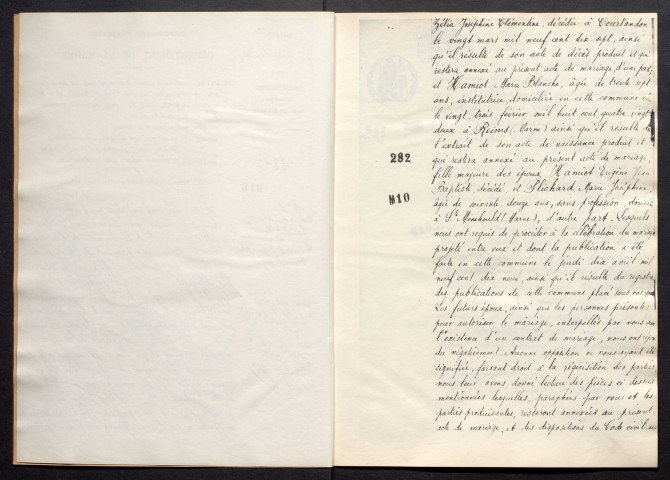 Zélia Joséphine Clémentine, décédée à Courlandon
le vingt mars mil neuf cent dix sept, ainsi
qu'il résulte de son acte de décès produit et qui
restera annexé au présent acte de mariage, d'une part,
et Hamiot, Marie Blanche, âgée de trente sept
ans, institutrice, domiciliée en cette commune née
le vingt trois février mil huit cent quatre vingt
deux à Reims (Marne) ainsi qu'il résulte de
l'extrait de son acte de naissance produit et
282
qui restera annexé au présent acte de mariage,
fille majeure des époux Hamiot Eugène Jean
Baptiste, décédé, et Plichard Marie Joséphine,
N10
âgée de soixante douze ans, sans profession, domici
à Ste Menehould (Marne), d'autre part. Lesquels
nous ont requis de procéder à la célébration du mariage
projeté entre eux et dont la publication a été
faite en cette commune le jeudi dix avril mil
neuf cent dix neuf, ainsi qu'il résulte du registre
des publications de cette commune placé sous nos yeux
Les futurs époux, ainsi que les personnes présentes
pour autoriser le mariage, interpellés par nous sur
l'existence d'un contrat de mariage, nous ont répon
du négativement. Aucune opposition ne nous ayant été
signifiée, faisant droit à la réquisition des parties
nous leur avons donné lecture des pièces ci dessus
mentionnées lesquelles, paraphées par nous et les
parties produisantes, resteront annexées au présent
acte de mariage, et des dispositions du Code civil